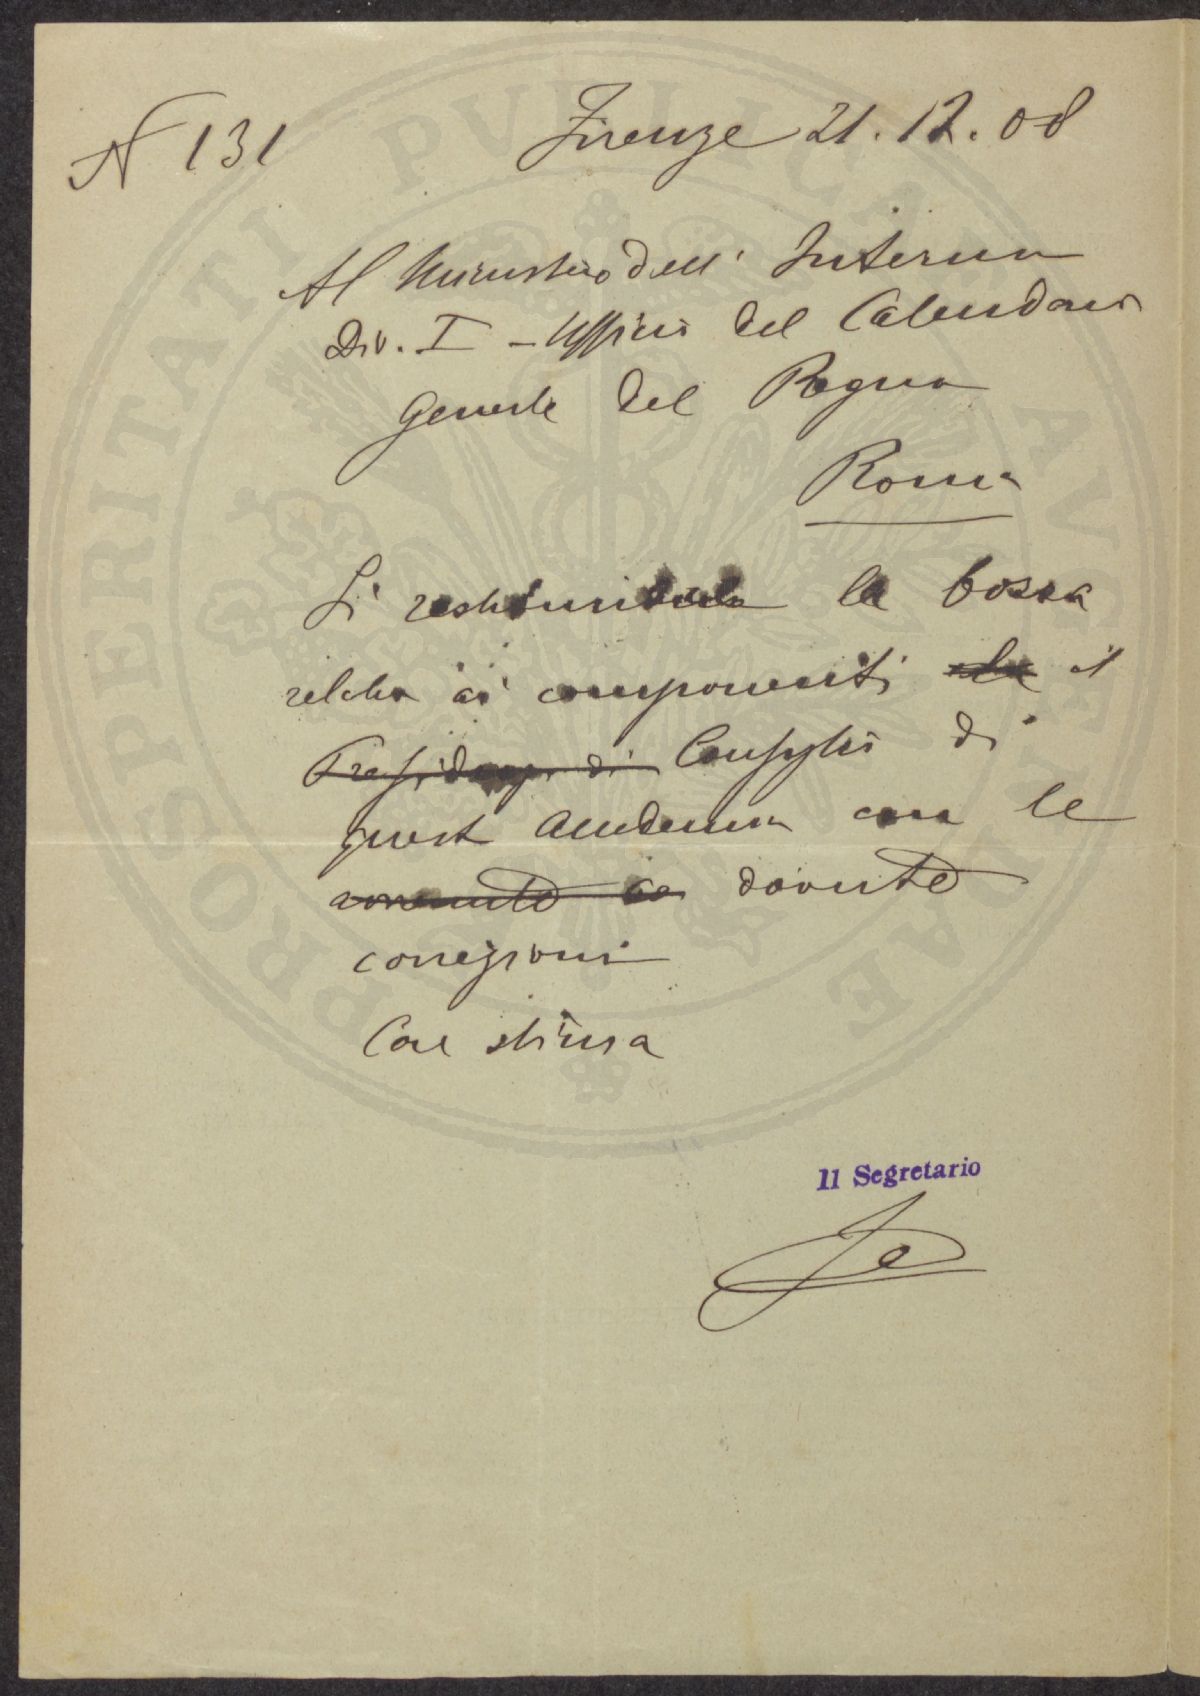 N 131
Firenze 21.12.08
Al Ministero dell' Interno
Div. I - Ufficio del Calendario
Generale del Regno
Roma
Si la bozza
relativa ai componenti il
Presidenza di Consiglio di
quest Accademia con le
dovute
correzioni
Con stima
Il Segretario
PROSPERITATI PVBLICAE AVGENDAE